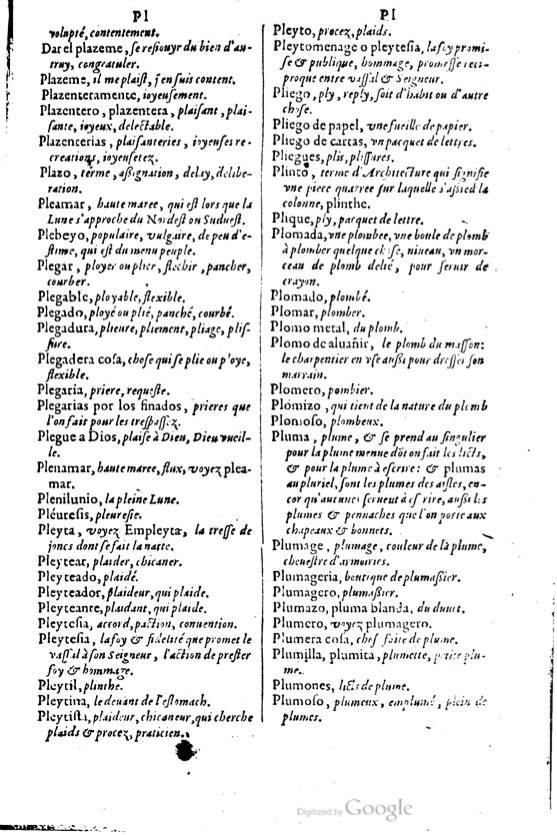 PI
volupté, contentement.
Dar el plazeme, se resiouyr du bien d'au-
truy, congratuler.
Plazeme, il me plaist, j'en suis content.
Plazenteramente, ioyeusement.
Plazentero, plazentera, plaisant, plai-
sante, ioyeux, delectable.
Plazenterias, plaisanteries, ioyeuses re-
creations, ioyeusetez.
Plazo, terme, assignation, delay, delibe-
ration.
Pleamar, haute maree, qui est lors que la
Lune s'approche du Nordest ou Suduest.
Plebeyo, populaire, vulgaire, de peu d'e-
stime, qui est du menu peuple.
Plegar, ployer ou plier, flechir, pancher,
courber.
Plegable, ployable, flexible.
Plegado, ployé ou plié, panché, courbé.
Plegadura, plieure, pliement, pliage, plis-
sure.
Plegadera cosa, chose qui se plie ou ploye,
flexible.
Plegaria, priere, requeste.
Plegarias por los finados, prieres que
l'on fait pour les trespassez.
Plegue a Dios, plaise à Dieu, Dieu vueil-
le.
Plenamar, haute maree, flux, voyez plea-
mar.
Plenilunio, la pleine Lune.
Pléuresis, pleuresie.
Pleyta, voyez Empleyta, la tresse de
joncs dont se fait la natte.
Pleytear, plaider, chicaner.
Pleyteado, plaidé.
Pleyteador, plaideur, qui plaide.
Pleyteante, plaidant, qui plaide.
Pleytesia, accord, paction, conuention.
Pleytesia, la foy & fidelité que promet le
vassal à son Seigneur, l'action de prester
foy & hommage.
Pleytil, plinthe.
Pleytina, le deuant de l'estomach.
Pleytista, plaideur, chicaneur, qui cherche
plaids & procez, praticien.
PI
Pleyto, procez, plaids.
Pleytomenage o pleytesia, la foy promi-
se & publique, hommage, promesse reci-
proque entre vassal & Seigneur.
Pliego, ply, reply, soit d'habits ou d'autre
chose.
Pliego de papel, vne fueille de papier.
Pliego de cartas, vn pacquet de lettres.
Pliegues, plis, plissures.
Plinto, terme d'Architecture qui signifie
vne piece quarree sur laquelle s'assied la
colonne, plinthe.
Plique, ply, pacquet de lettre.
Plomada, vne plombee, vne boule de plomb
à plomber quelque chose, niueau, vn mor-
ceau de plomb delié, pour seruir de
crayon.
Plomado, plombé.
Plomar, plomber.
Plomo metal, du plomb.
Plomo de aluañir, le plomb du masson:
le charpentier en vse aussi pour dresser son
marrain.
Plomero, plombier.
Plomizo, qui tient de la nature du plomb
Plomoso, plombeux.
Pluma, plume, & se prend au singulier
pour la plume menue dōt on fait les licts,
& pour la plume à escrire: & plumas
au pluriel, sont les plumes des aisles, en-
cor qu'aucunes seruent à escrire, aussi les
plumes & pennaches que l'on porte aux
chapeaux & bonnets.
Plumage, plumage, couleur de la plume,
cheuestre d'armories.
Plumageria, boutique de plumassier.
Plumagero, plumassier.
Plumazo, pluma blanda, du duuet.
Plumero, voyez plumagero.
Plumera cosa, chose faite de plume.
Plumilla, plumita, plumette, petite plu-
me.
Plumones, licts de plume.
Plumoso, plumeux, emplumé, plein de
plumes.
Digitized by Google